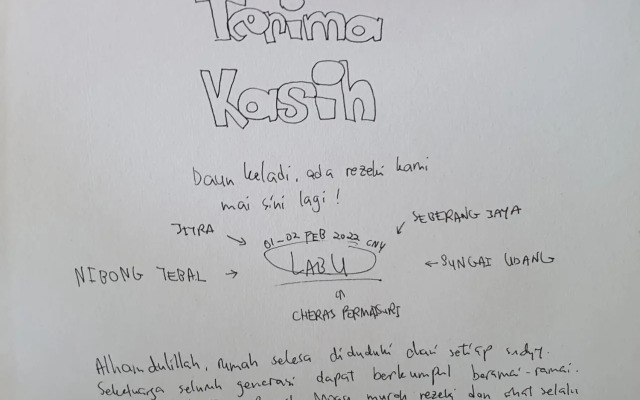 Terima
Kasih
Daun keladi, ada rezeki kami
mai sini lagi!
JITRA
SEBERANG JAYA
01-02 FEB 2022 CNY
NIBONG TEBAL
LABU
SUNGAI UDANG
CHERAS PERMAISURI
Alhamdulillah, rumah selesa diduduki dari setiap sudut.
Sekeluarga seluruh generasi dapat berkumpul beramai-ramai.
murah rezeki dan sihat selalu